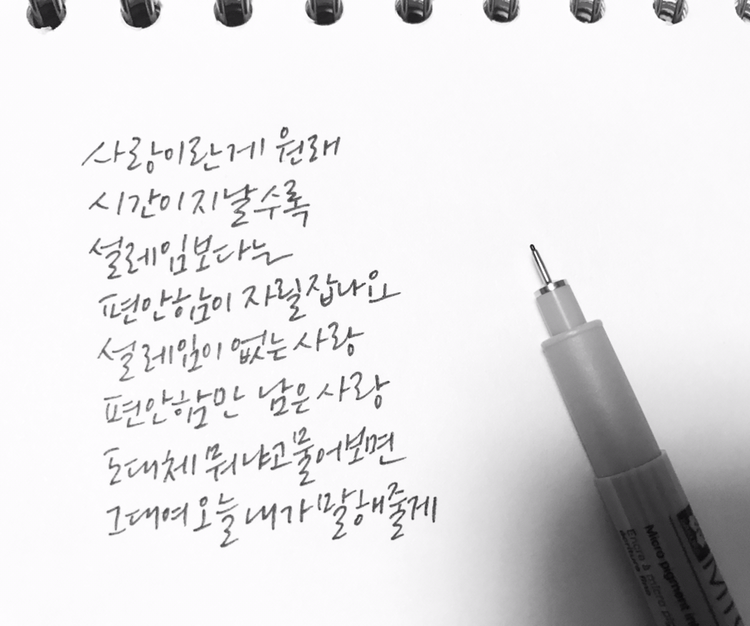 사랑이란게 원래
시간이 지날수록
설레임보다는
편안함이 자릴 잡나요
설레임이 없는 사랑
편안함만 남은 사랑
도대체 뭐냐고 물어보면
그대여 오늘 내가 말해줄게
Micro pigment ink
Encre à micro pi